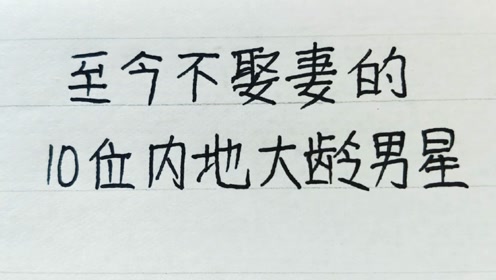 至今不娶妻的
10位内地大龄男星